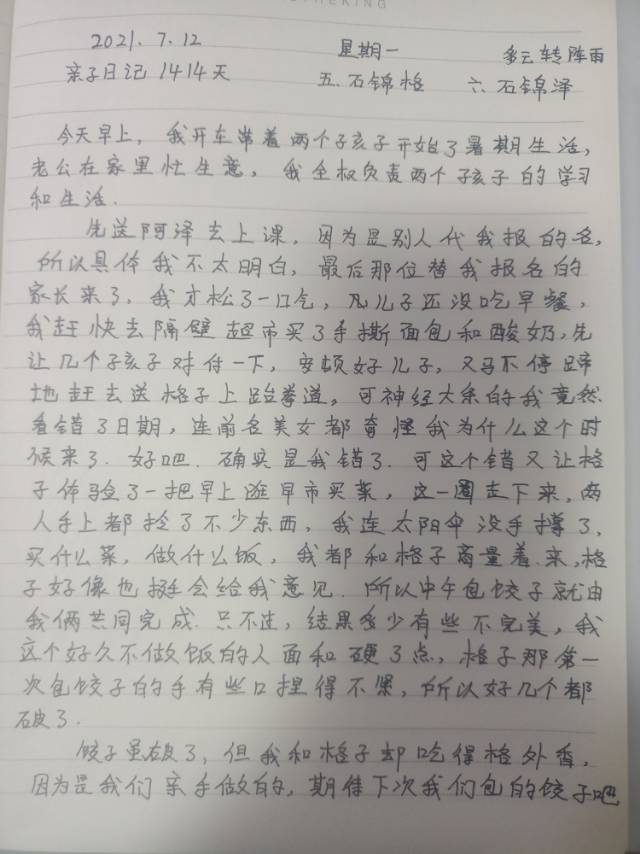 2021.7.12 星期一 多云转阵雨
亲子日记1414天 五.石锦格 六.石锦泽
今天早上，我开车带着两个子孩子开始了暑期生活，
老公在家里忙生意，我全权负责两个子孩子的学习
和生活.
先送阿泽去上课，因为是别人代我报的名，
所以具体我不太明白，最后那位替我报名的
家长来了，我才松了一口气，见儿子还没吃早餐，
我赶快去隔壁超市买了手撕面包和酸奶，先
让几个子孩子对付一下，安顿好儿子，又马不停蹄
地赶去送格子上跆拳道，可神经大条的我竟然
看错了日期，连前台美女都奇怪我为什么这个时
候来了.好吧.确实是我错了.可这个错又让格
子体验了一把早上逛早市买菜，这一圈走下来，两
人手上都拎了不少东西，我连太阳伞没手撑了，
买什么菜，做什么饭，我都和格子商量着.来，格
子好像也挺会给我意见.所以中午包饺子就由
我俩共同完成.只不过，结果多少有些不完美，我
这个好久不做饭的人面和硬了点，格子那第一
次包饺子的手有些口捏得不紧，所以好几个都
破了.
饺子虽破了，但我和格子却吃得格外香，
因为是我们亲手做的，期待下次我们包的饺子吧